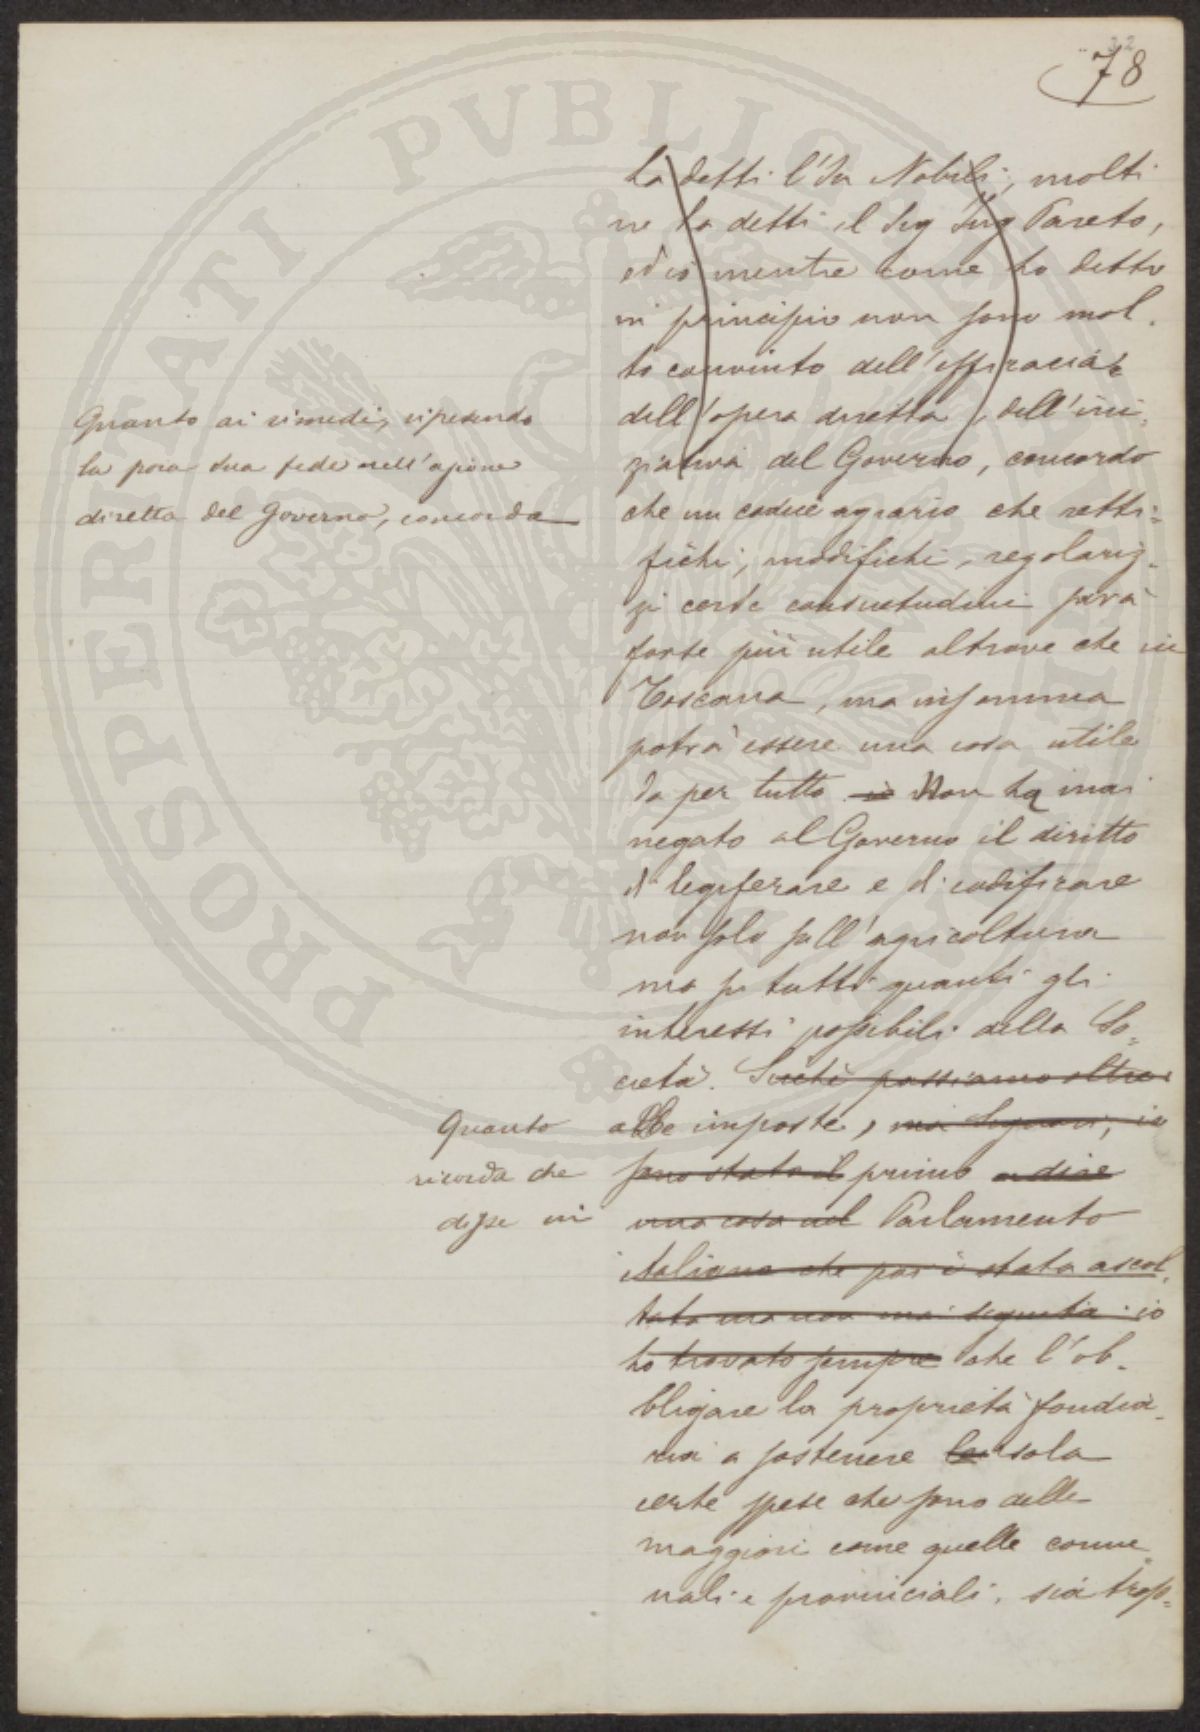 32
78
ha detti l'On Nobili, molti
ne ha detti il Sig Ing Pareto,
ed io mentre come ho detto
in principio non sono mol-
to convinto dell'efficacia
dell'opera diretta, dell'ini-
ziativa del Governo, concordo
Quanto ai rimedi, ripetendo
la poca sua fede nell'azione
diretta del Governo, concorda
che un codice agrario che retti-
fichi, modifichi, regolariz-
zi certe consuetudini sarà
forse più utile altrove che in
Toscana, ma insomma
potrà essere una cosa utile
da per tutto. io Non ha mai
negato al Governo il diritto
di legiferare e di codificare
non solo sull'agricoltura
ma su tutti quanti gli
interessi possibili della So-
cietà. Sicchè passiamo oltre
Quanto
alle imposte, ma Signori, io
ricorda che
sono stato il primo a dire
disse in
una cosa nel Parlamento
italiano che poi è stata ascol-
tata ma non mai seguita: io
ho trovato sempre che l'ob-
bligare la proprietà fondia-
ria a sostenere la sola
certe spese che sono delle
maggiori come quelle comu-
nali e provinciali, sia trop-
PROSPERITATI PVBLICAE